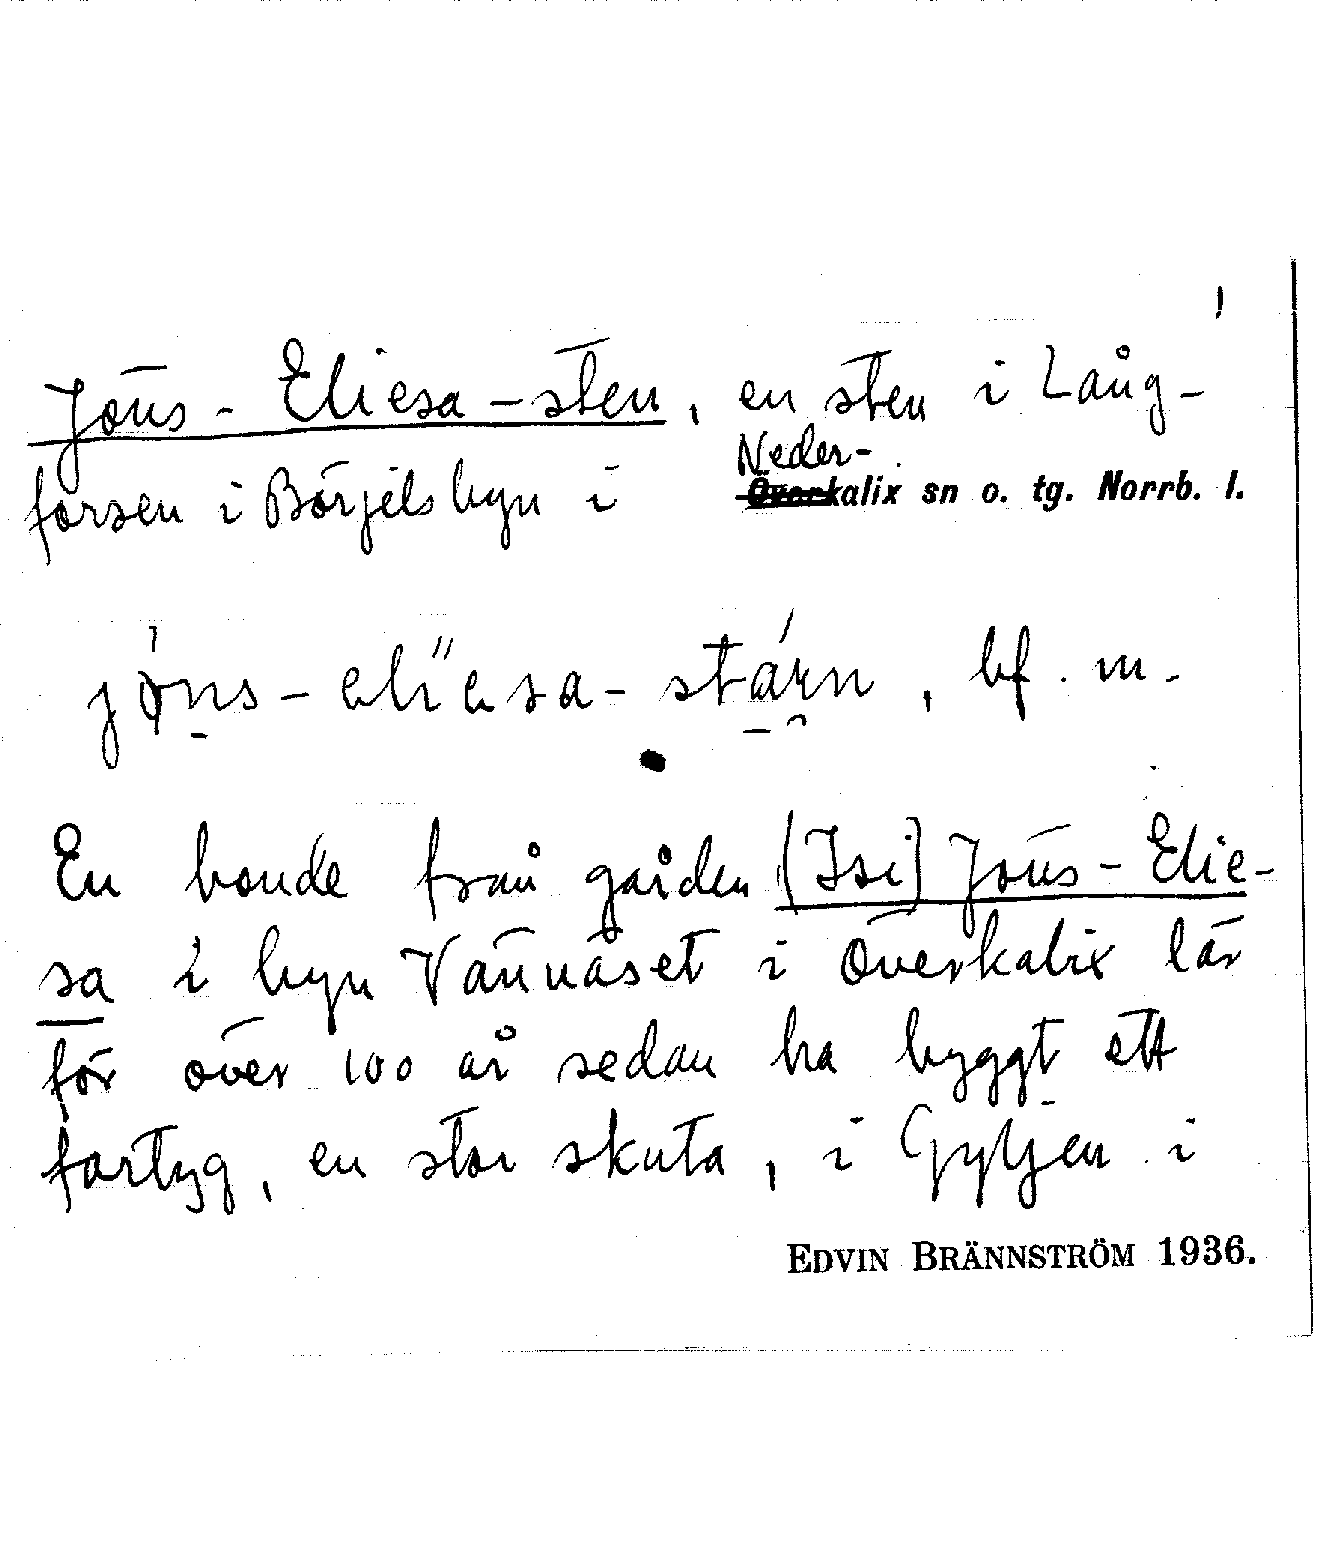 Jöns-Eliesa-sten, en sten i Lång-
forsen i Börjelsbyn i Neder-
Överkalix sn o. tg. Norrb. l.
jöns-eliesa-stárn, bf. m.
En bonde från gården (Isi) Jöns-Elie-
sa i byn Vännäset i Överkalix lär
för över 100 år sedan ha byggt ett
fartyg, en stor skuta, i Gyljen i
EDVIN BRÄNNSTRÖM 1936.